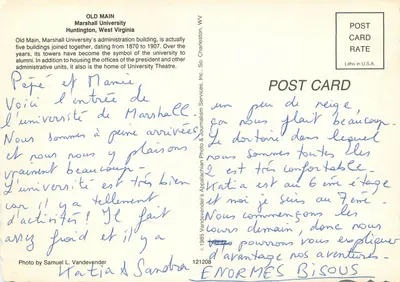 OLD MAIN
Marshall University
Huntington, West Virginia
Old Main, Marshall University's administration building, is actually
five buildings joined together, dating from 1870 to 1907. Over the
years, its towers have become the symbol of the university to
alumni. In addition to housing the offices of the president and other
administrative units, it also is the home of University Theatre.
Pépé et Mamie,
Voici l'entrée de
l'université de Marshall.
Nous sommes à peine arrivées
et nous nous y plaisons
vraiment beaucoup.
L'université est très bien
car il y a tellement
d'activités! Il fait
assez froid et il y a
Photo by Samuel L. Vandevender
Katia & Sandra
© 1985 Vandevender's Appalachian Photo & Journalism Services, Inc., So. Charleston, WV
121208
POST
CARD
RATE
Litho in U.S.A.
POST CARD
un peu de neige,
ça nous plait beaucoup.
Le dortoire dans lequel
nous sommes toutes les
2 est très confortable.
Katia est au 6ème étage
et moi je suis au 7ème.
Nous commençons les
cours demain, donc nous
pourrons vous expliquer
d'avantage nos aventures.
ENORMES BISOUS